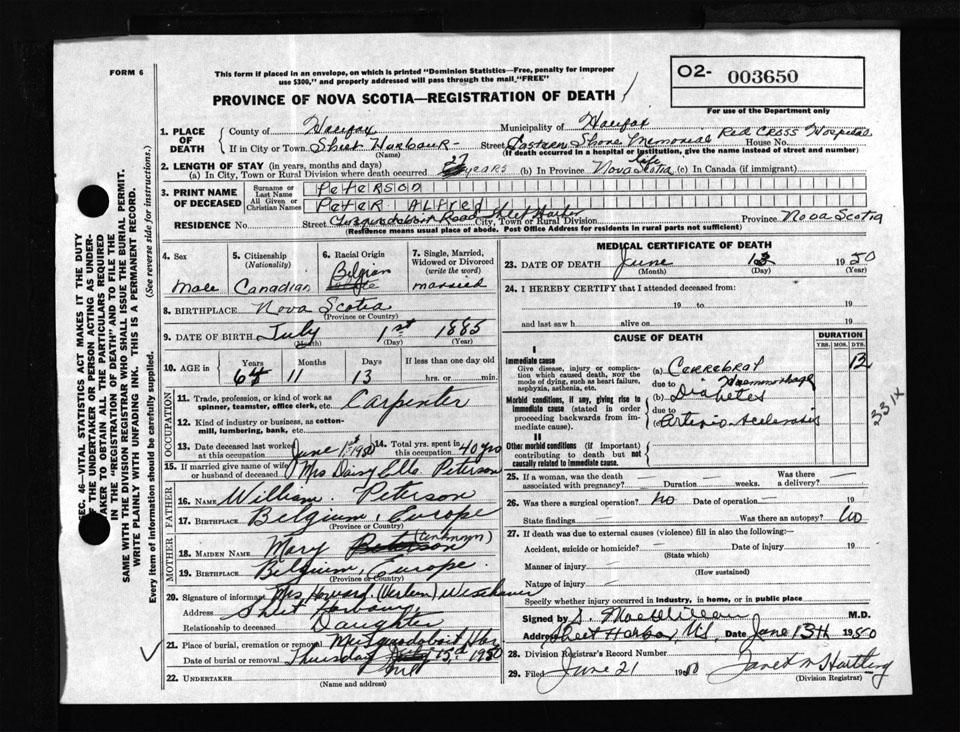 FORM 6
This form if placed in an envelope, on which is printed "Dominion Statistics—Free, penalty for improper
use $300," and properly addressed will pass through the mail, "FREE"
O2- 003650
For use of the Department only
PROVINCE OF NOVA SCOTIA—REGISTRATION OF DEATH
1. PLACE OF DEATH
County of Halifax Municipality of Halifax
If in City or Town Sheet Harbour Street Eastern Shore Memorial Red Cross Hospital House No.
(Name) (If death occurred in a hospital or institution, give the name instead of street and number)
2. LENGTH OF STAY (in years, months and days)
(a) In City, Town or Rural Division where death occurred 27 years (b) In Province Nova Scotia life (c) In Canada (if immigrant)
3. PRINT NAME OF DECEASED
Surname or Last Name PETERSON
All Given or Christian Names PETER ALFRED
RESIDENCE No. Street Musquodoboit Road Sheet Harbor City, Town or Rural Division Province Nova Scotia
(Residence means usual place of abode. Post Office Address for residents in rural parts not sufficient)
4. Sex Male
5. Citizenship (Nationality) Canadian
6. Racial Origin Belgian
7. Single, Married, Widowed or Divorced (write the word) married
8. BIRTHPLACE Nova Scotia
(Province or Country)
9. DATE OF BIRTH July 1st 1885
(Month) (Day) (Year)
10. AGE in Years 64 Months 11 Days 13 If less than one day old hrs. or min.
OCCUPATION
11. Trade, profession, or kind of work as spinner, teamster, office clerk, etc. Carpenter
12. Kind of industry or business, as cotton-mill, lumbering, bank, etc.
13. Date deceased last worked at this occupation June 1st 1950
14. Total yrs. spent in this occupation 40 yrs
15. If married give name of wife or husband of deceased Mrs Daisy Ella Peterson
FATHER
16. NAME William Peterson
17. BIRTHPLACE Belgium, Europe
(Province or Country)
MOTHER
18. MAIDEN NAME Mary Peterson (Unknown)
19. BIRTHPLACE Belgium, Europe.
(Province or Country)
20. Signature of informant Mrs Howard
Address Sheet Harbour
Relationship to deceased Daughter
21. Place of burial, cremation or removal Musquodoboit Hbr
Date of burial or removal Thursday July 15th 1950
22. UNDERTAKER
(Name and address)
MEDICAL CERTIFICATE OF DEATH
23. DATE OF DEATH June 13 1950
(Month) (Day) (Year)
24. I HEREBY CERTIFY that I attended deceased from:
19 to 19
and last saw h alive on 19
CAUSE OF DEATH
DURATION
YRS. MOS. DYS.
I
Immediate cause
Give disease, injury or complication which caused death, nor the mode of dying, such as heart failure, asphyxia, asthenia, etc.
(a) Cerrebral Haemmorhage 12
due to
Morbid conditions, if any, giving rise to immediate cause (stated in order proceeding backwards from immediate cause).
(b) Diabetes
due to
(c) Arterio-sclerosis
331X
II
Other morbid conditions (if important) contributing to death but not causally related to immediate cause.
25. If a woman, was the death associated with pregnancy? — Duration — weeks. Was there a delivery? —
26. Was there a surgical operation? No Date of operation — 19
State findings — Was there an autopsy? No
27. If death was due to external causes (violence) fill in also the following:—
Accident, suicide or homicide? — Date of injury 19
(State which)
Manner of injury —
(How sustained)
Nature of injury —
Specify whether injury occurred in industry, in home, or in public place
Signed by S. MacWilliam M.D.
Address Sheet Harbor, NS Date June 13TH 1950
28. Division Registrar's Record Number
29. Filed June 21 1950 Janet M Hartling
(Division Registrar)
SEC. 46—VITAL STATISTICS ACT MAKES IT THE DUTY
OF THE UNDERTAKER OR PERSON ACTING AS UNDER-
TAKER TO OBTAIN ALL THE PARTICULARS REQUIRED
IN THE "REGISTRATION OF DEATH" AND TO FILE THE
SAME WITH THE DIVISION REGISTRAR WHO SHALL ISSUE THE BURIAL PERMIT.
WRITE PLAINLY WITH UNFADING INK. THIS IS A PERMANENT RECORD.
Every item of information should be carefully supplied. (See reverse side for instructions.)